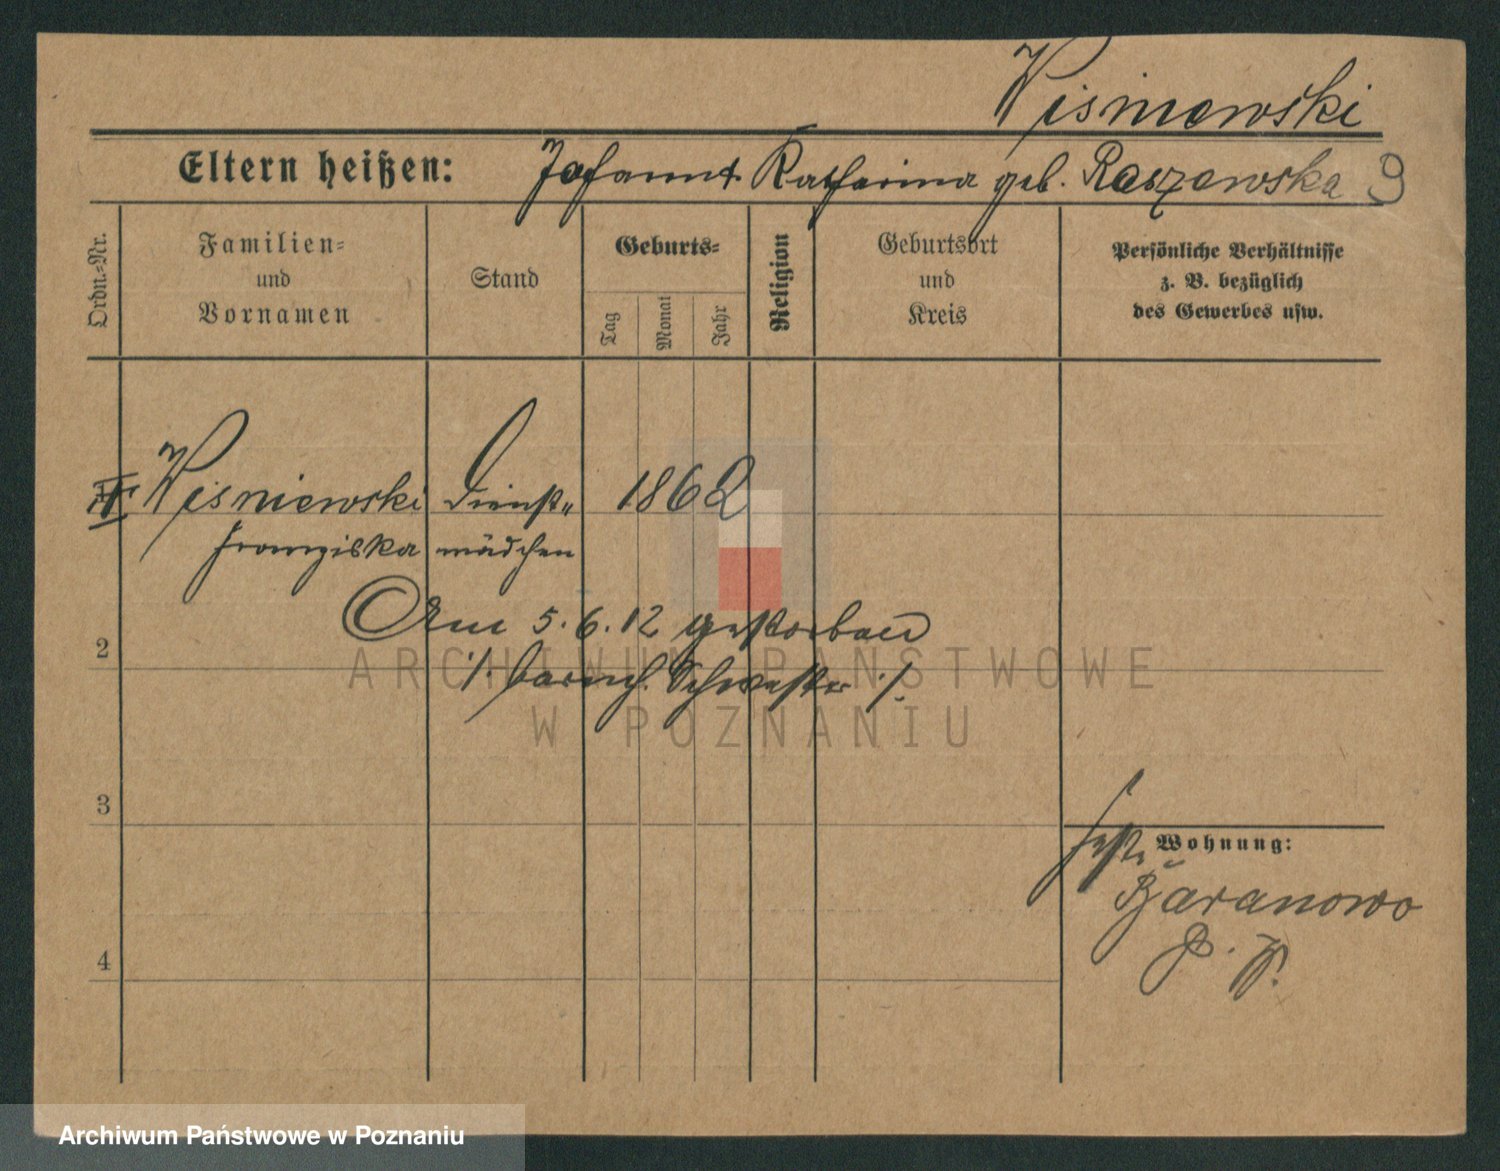 Wisniewski
Eltern heißen: Johann u. Katharina geb. Raszewska
Ordn.=Nr.
Familien=
und
Vornamen
Stand
Geburts=
Tag
Monat
Jahr
Religion
Geburtsort
und
Kreis
Persönliche Verhältnisse
z. B. bezüglich
des Gewerbes usw.
Wisniewski Dienst= 1862
Franziska mädchen
Am 5.6.12 gestorben
2
·/. barmh. Schwester ·/.
ARCHIWUM PAŃSTWOWE
W POZNANIU
3
Wohnung:
Baranowo
4
Archiwum Państwowe w Poznaniu